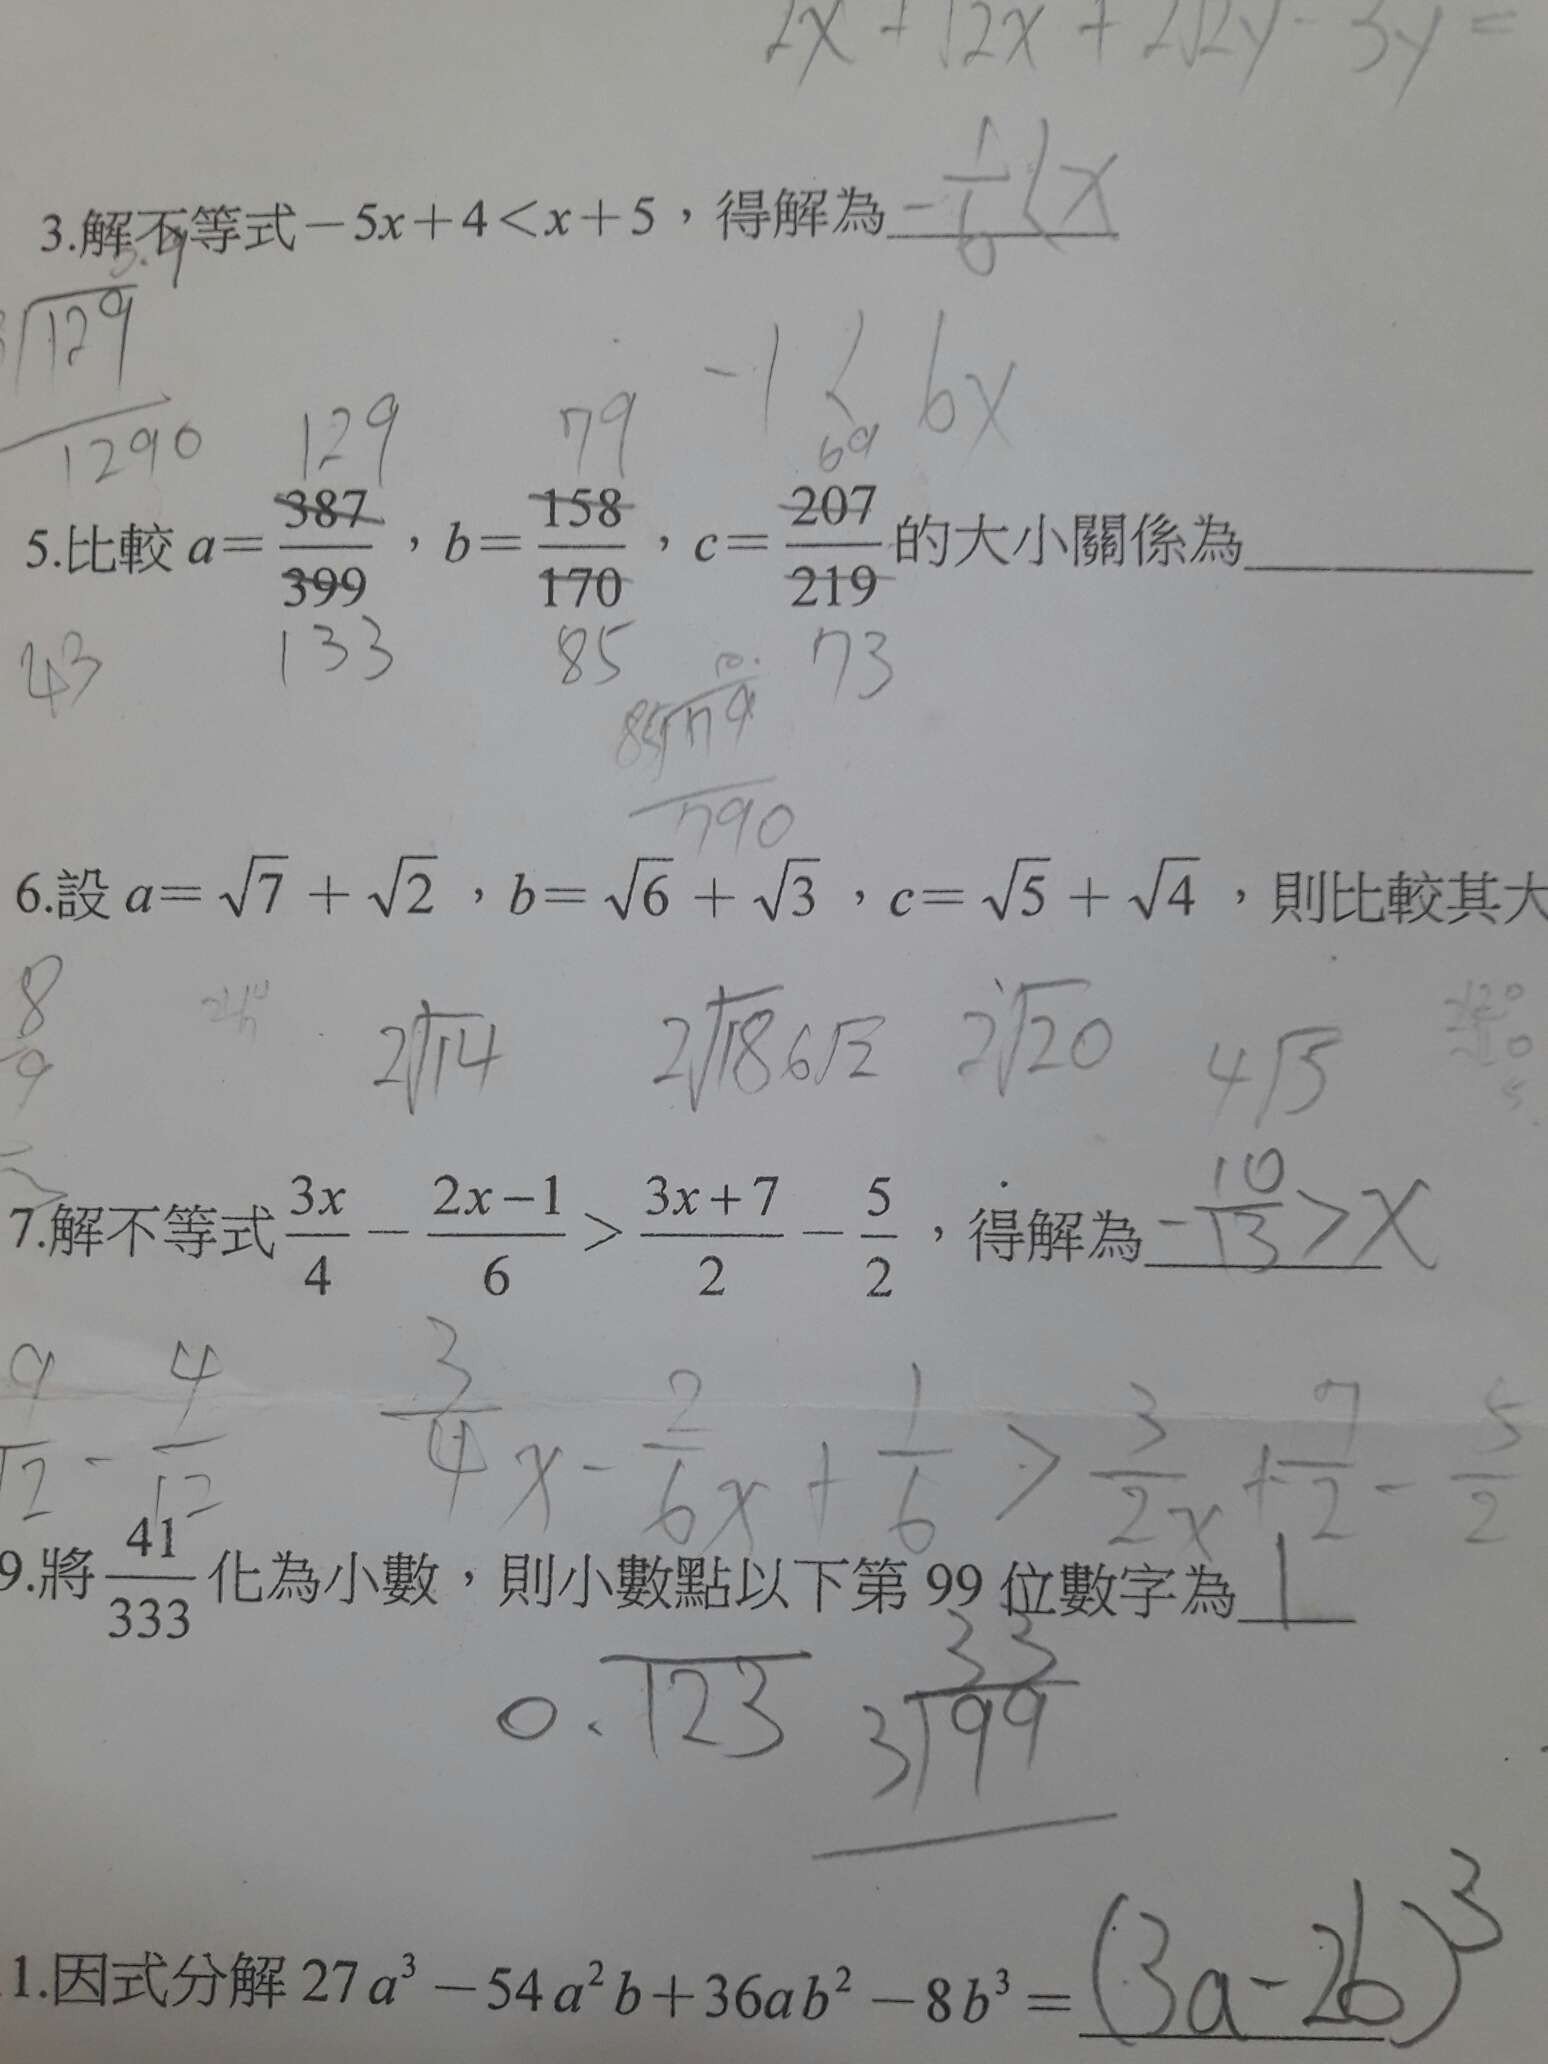 2x + √2x + 2√2y - 3y =
3.解不等式-5x+4<x+5,得解為 -1/6 < x
129
1290
-1 < 6x
129 79 69
5.比較 a=387/399,b=158/170,c=207/219 的大小關係為
43 133 85 73
85√79
790
6.設 a=√7+√2,b=√6+√3,c=√5+√4,則比較其大
8
9
2√14 2√18 6√2 2√20 4√5
7.解不等式 3x/4 - (2x-1)/6 > (3x+7)/2 - 5/2,得解為 -10/13 > x
9/12 - 4/12 3/4 x - 2/6 x + 1/6 > 3/2 x + 7/2 - 5/2
9.將 41/333 化為小數,則小數點以下第 99 位數字為 1
0.1̅2̅3̅
33
3√99
1.因式分解 27a³-54a²b+36ab²-8b³= (3a-2b)³